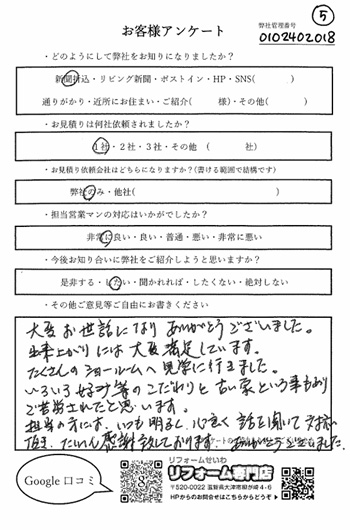 ⑤
お客様アンケート
弊社管理番号
0102402018
・どのようにして弊社をお知りになりましたか？
新聞折込・リビング新聞・ポストイン・HP・SNS(　　　)
通りがかり・近所にお住まい・ご紹介(　　　様)・その他(　　　)
・お見積りは何社依頼されましたか？
1社・2社・3社・その他　(　　　社)
・お見積り依頼会社はどちらになりますか？(書ける範囲で結構です)
弊社のみ・他社(　　　)
・担当営業マンの対応はいかがでしたか？
非常に良い・良い・普通・悪い・非常に悪い
・今後お知り合いに弊社をご紹介しようと思いますか？
是非する・したい・聞かれれば・したくない・絶対しない
・その他ご意見等ご自由にお書きください
大変お世話になり ありがとうございました。
出来上がりには大変満足しています。
たくさんのショールームへ見学に行きました。
いろいろ好み等のこだわりと古い家という事もあり
ご苦労されたと思います。
担当の方には、いつも明るく、心良く話を聞いて対応
頂き、たいへん感謝致しております。ありがとうございました。
Google 口コミ
リフォームせいわ
リフォーム専門店
〒520-0022 滋賀県大津市柳が崎4-6
HPからのお問合せはこちらからどうぞ